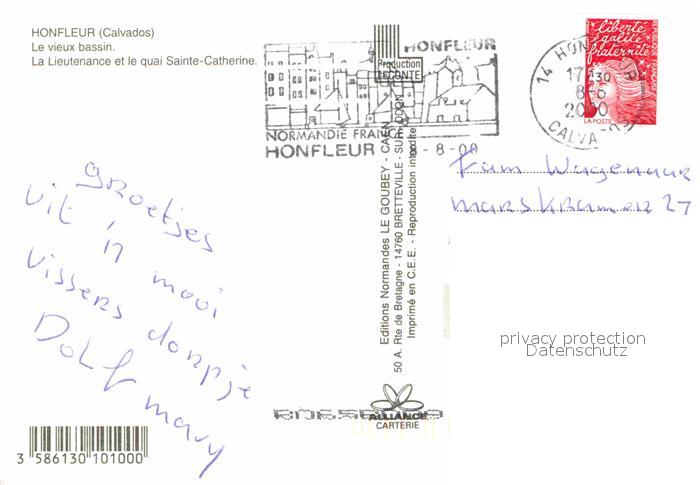 HONFLEUR (Calvados)
Le vieux bassin.
La Lieutenance et le quai Sainte-Catherine.
Groetjes
uit 'n mooi
vissers dorpje
Dolf
mary
3 586130 101000
HONFLEUR
Production
LECONTE
NORMANDIE FRANCE
HONFLEUR -8-00
Editions Normandes LE GOUBEY - CAEN
50 A. Rte de Bretagne - 14760 BRETTEVILLE - SUR - ODON
Imprimé en C.E.E. - Reproduction interdite
ALLIANCE
CARTERIE
14 HON
17 30
8-8
2000
CALVADOS
liberté
égalité
fraternité
LA POSTE
Fam Wagenaar
marskramer 27
privacy protection
Datenschutz